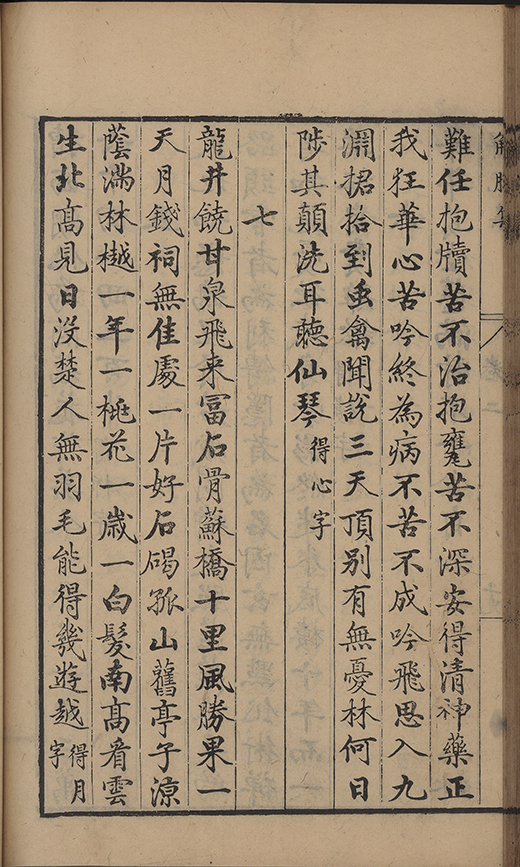 解脫集
卷二
難任抱牘苦不治抱甕苦不深安得清神藥正
我狂華心苦吟終為病不苦不成吟飛思入九
淵捃拾到䖝禽聞説三天頂別有無憂林何日
陟其顛洗耳聽仙琴得心字
七
龍井饒甘泉飛来冨石骨蘇橋十里風勝果一
天月錢祠無佳處一片好石碣孤山舊亭子涼
蔭滿林樾一年一桃花一歲一白髮南髙看雲
生北髙見日没楚人無羽毛能得幾遊越得月字